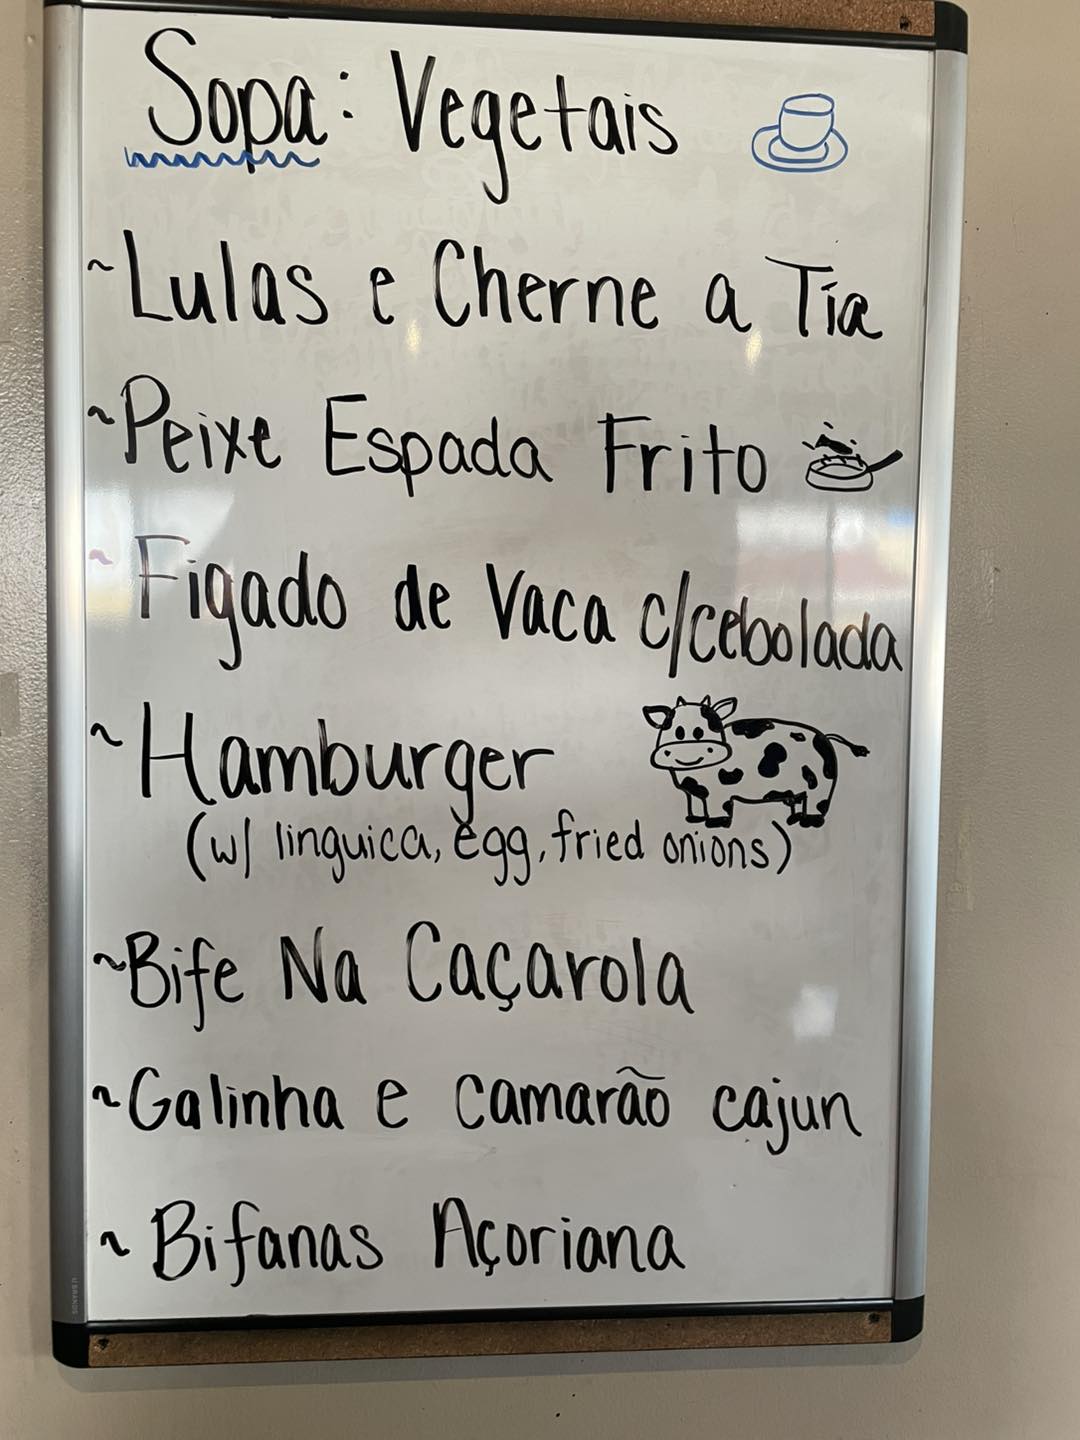 Sopa: Vegetais
~Lulas e Cherne a Tía
~Peixe Espada Frito
~Figado de Vaca c/cebolada
~Hamburger
(w/ linguica, egg, fried onions)
~Bife Na Caçarola
~Galinha e camarão cajun
~Bifanas Açoriana